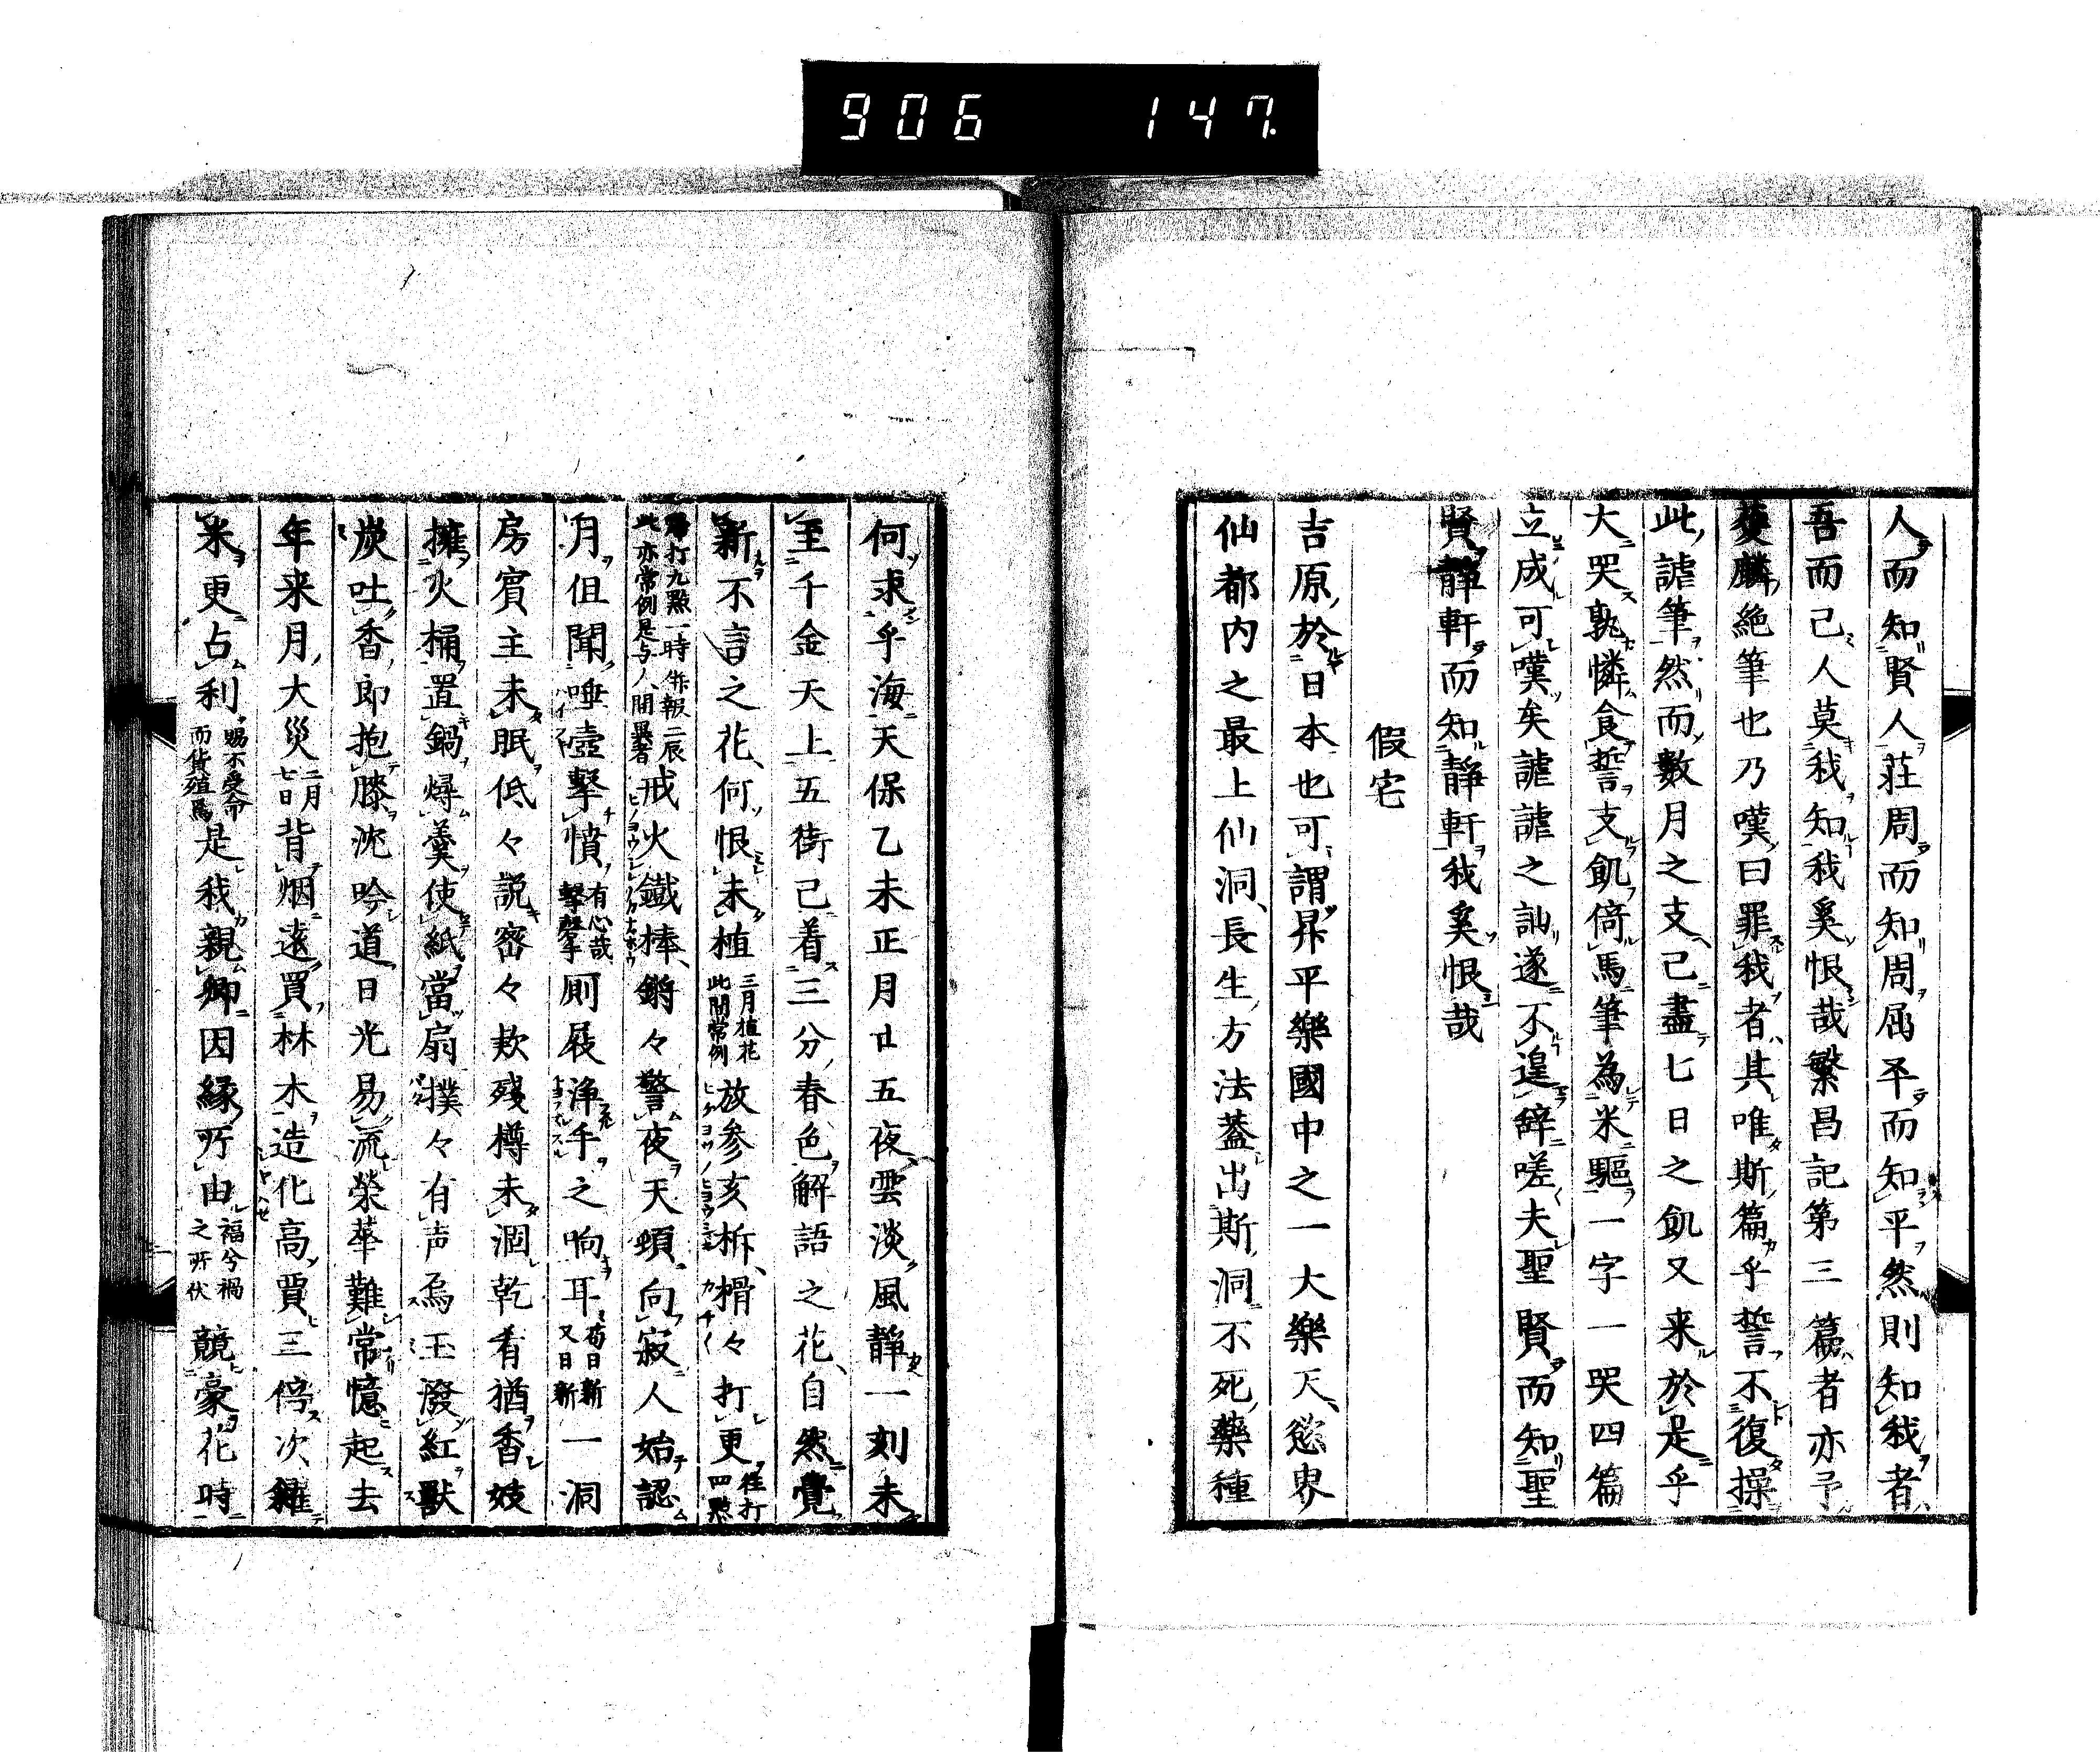 906 147
人而知賢人莊周而知周屈平而知平然則知我者
吾而已人莫我知我奚恨哉繁昌記第三篇者亦予
獲麟絶筆也乃嘆曰罪我者其唯斯篇乎誓不復操
此謔筆然而數月之支已盡七日之飢又来於是乎
大哭孰憐食誓支飢倚馬筆為米驅一字一哭四篇
立成可嘆矣謔謔之訕遂不遑辞嗟夫聖賢而知聖
賢靜軒而知靜軒我奚恨哉
假宅
吉原於日本也可謂昇平樂國中之一大樂天慾界
仙都内之最上仙洞長生方法蓋出斯洞不死藥種
何求乎海天保乙未正月廿五夜雲淡風靜一刻未
至千金天上五街已着三分春色解語之花自然覺
新不言之花何恨未植三月植花此間常例放參亥柝榾々打更徃打四點
打九點一時併報二辰此亦常例是与人間異者戒火鐵棒鏘々警夜天頭向寂人始認
月但聞唾壺擊憤有心哉擊磬厠屐浄手之响耳苟日新又日新一洞
房賓主未眠低々説密々欵殘樽未涸乾肴猶香妓
擁火桶置鍋燖羹使紙當扇撲々有声烏玉潑紅獸
炭吐香即抱膝沈吟道日光易流榮華難常憶起去
年来月大災二月七日背烟遠買林木造化高賈三倍次糴
米更占利賜不受命而貨殖焉是我親卿因緣所由福兮禍之所伏競豪花時